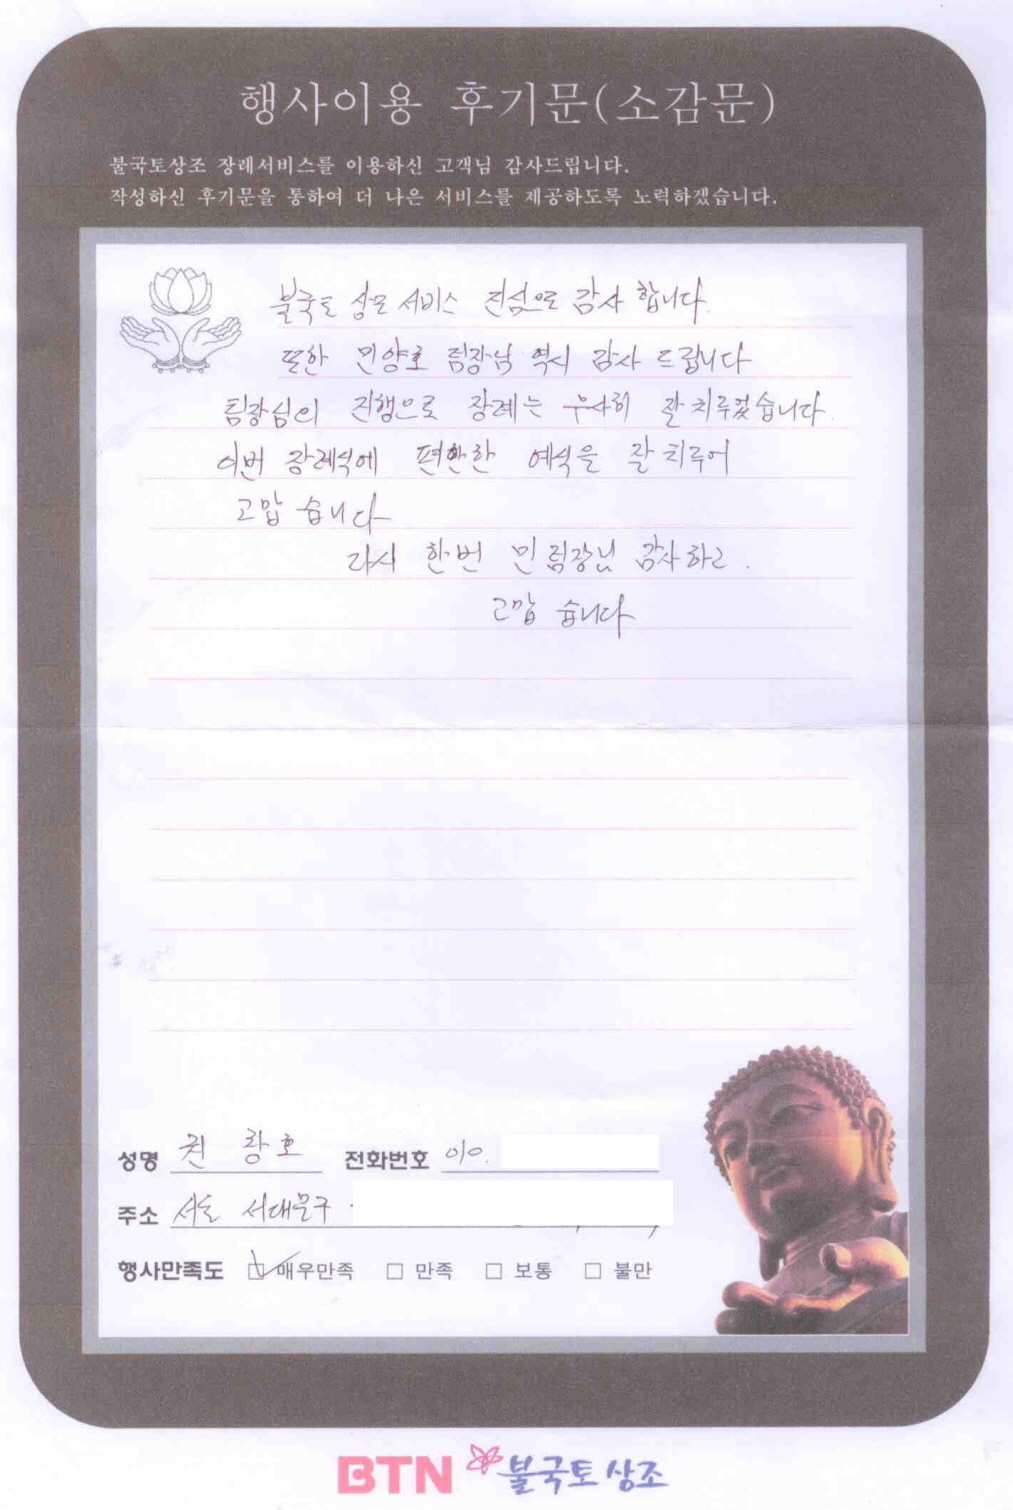 행사이용 후기문(소감문)
불국토상조 장례서비스를 이용하신 고객님 감사드립니다.
작성하신 후기문을 통하여 더 나은 서비스를 제공하도록 노력하겠습니다.
불국토 상조 서비스 진심으로 감사 합니다
또한 민양호 팀장님 역시 감사 드립니다
팀장님의 진행으로 장례는 무사히 잘 치루었습니다.
이번 장례식에 편안한 예식을 잘 치루어
고맙 습니다
다시 한번 민 팀장님 감사하고.
고맙 습니다
성명 권 창호 전화번호 010.
주소 서울 서대문구
행사만족도 매우만족 만족 보통 불만
BTN 불국토상조